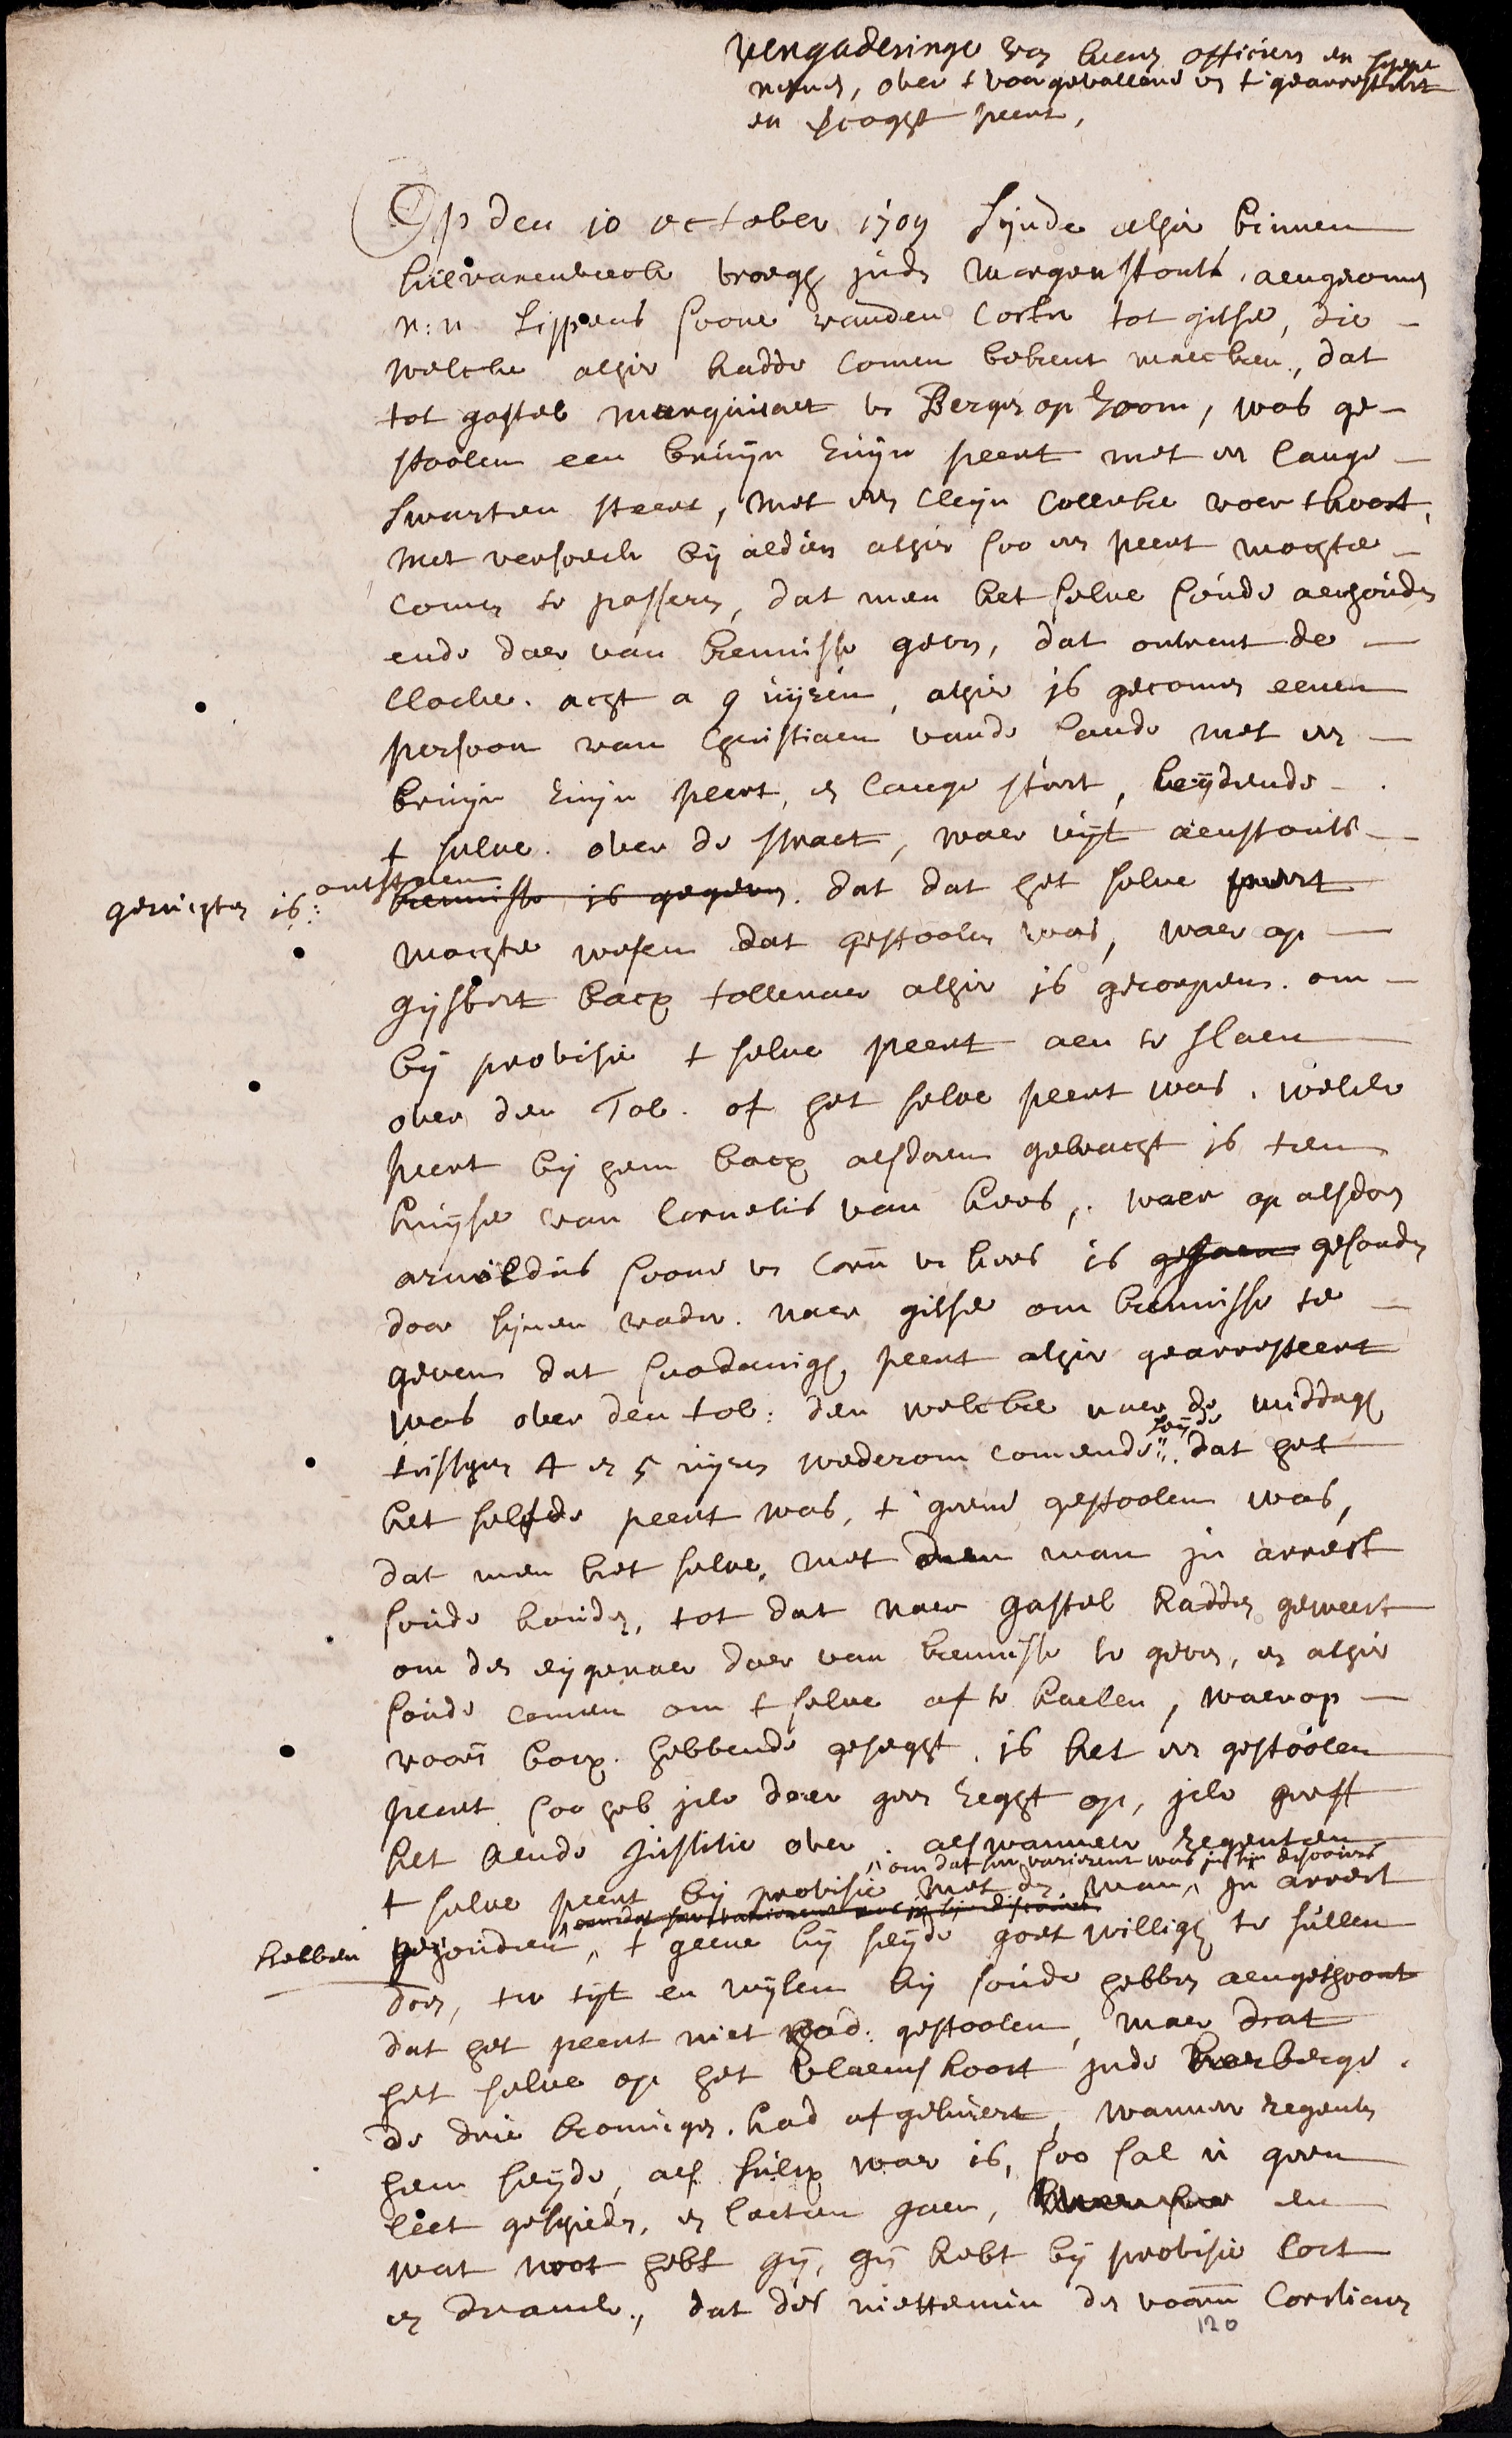 vergaderinge van heeren officiers en schepe
nenen, over t voorgevallene vn t gearresteert
en peert,
Op den 10 october 1709 sijnde alhir binnen
hilvarenbeeck vroegh inde morgenstont, aengecomen
n: n. Lippens soone vanden Coster tot gilse, die
welcke alhir hadde comen bekent maecken, dat
tot gastel marquisaet vn Bergen op Zoom, was ge-
stoolen een bruijn ruijn peert met en lange
swarten steert, met een cleijn colleke voor thooft,
met versoeck bij aldien alhier soo een peert mochte
comen te passeren, dat men het selve soude aenhouden
ende daer van kennisse geven, dat ontrent de
clocke. acht a 9 uijren, alhier is gecomen eenen
persoon van Christiaen vande Lande met een
bruijn ruijn peert, en lange stert, leijdende
t selve. over de straet, waer uijt aenstonts
geruchten is: ontstaen kennisse is gegeven. dat dat het selve peert
mochte wesen dat gestoolen was, waer op
Gijsbert backx tollenaer alhir is geroepen. om
bij provisie t selve peert aen te slaen
over den Tol. of het selve peert was. welck
peert bij hem backx alsdoen gebracht is ten
huijse van Cornelis van hees,. waer op alsdoen
arnoldus soone vn Corn vn hees is gesonden
door sijnen vader. naer gilse om kennisse te
geven dat soodanigh peert alhir gearresteert
was over den tol: den welcke naer de middagh
tusschen 4 en 5 uijren wederom comende seijde dat het
het selfde peert was, t geene gestoolen was,
dat men het selve, met den man in arrest
soude houden, tot dat naer gastel hadden geweest
om den eijgenaer daer van kennisse te geven, en alhir
soude comen om t selve af te haelen, waerop
voors backx. hebbende geseght. is het een gestoolen
peert soo heb ick daer geen reght op, ick geeff
het aende Justitie over. alswanneer regenten
t selve peert bij provisie met den man, om dat hij variërent was in sijn discours in arrest
hebben gehouden, omdat hij variërent was in sijn discours t geene hij seijde goet willigh te sullen
doen, ter tijt en wijlen hij soude hebben aengethoont
dat het peert niet had: gestoolen, maer dat
het selve op het vlaems hooft inde herberge.
de drie koningen. had afgehuert, wanneer regenten
hem seijde, als sulcx waer is, soo sal u geen
leet geschieden, en laeten gaen, en
wat noot hebt gij, gij hebt bij provisie cost
en dranck., dat des niettemin den voorn Corstiaen
120